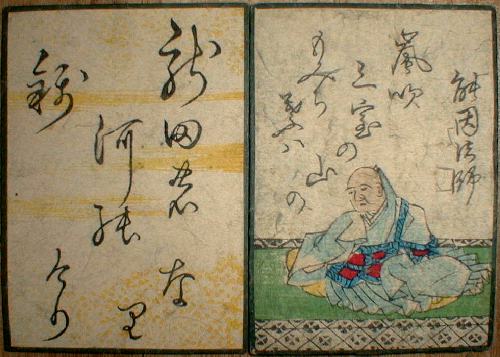 能因法師
嵐吹
三室の山の
もみち葉ハ
龍田の
河の
錦
な里
けり